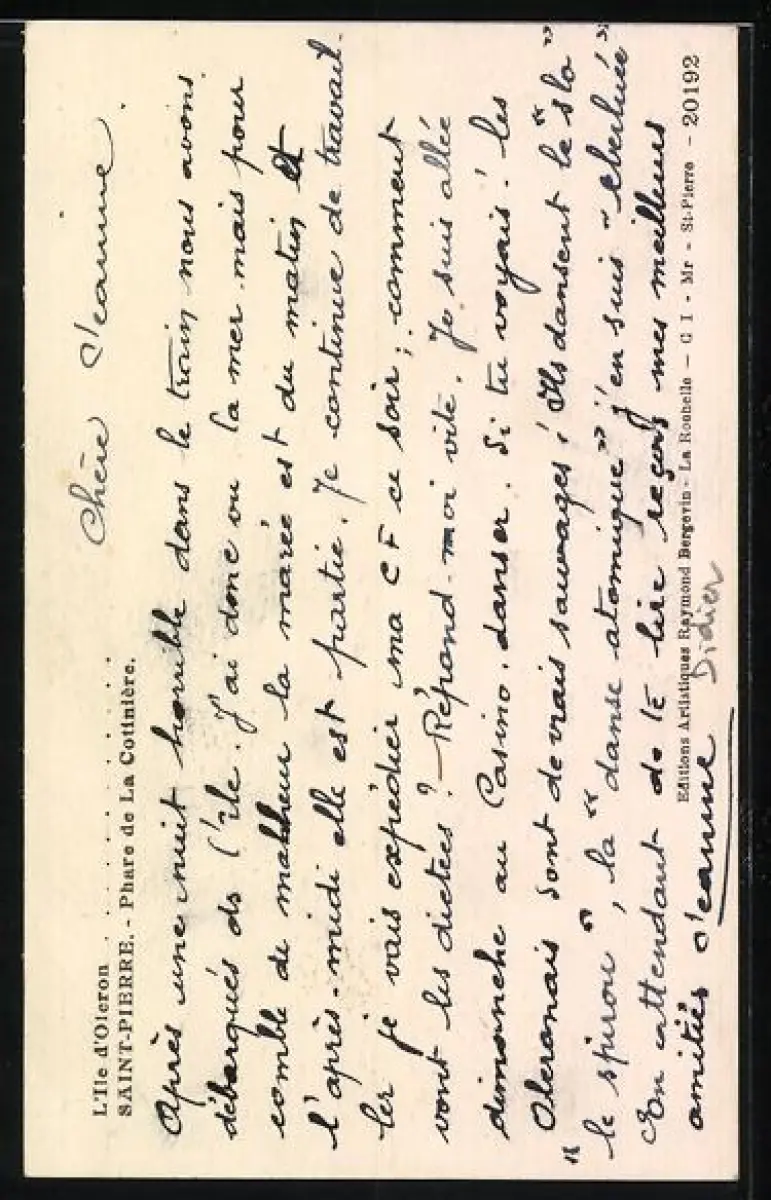 L'Ile d'Oleron . . . . . . . . . .
SAINT-PIERRE. - Phare de La Cotinière.
Chère Jeannine.
Après une nuit horrible dans le train nous avons
débarqués ds l'île. J'ai donc vu la mer mais pour
comble de malheur la marée est du matin et
l'après-midi elle est partie. Je continue de travail-
ler je vais expédier ma CF ce soir; comment
vont les dictées? Répond-moi vite. Je suis allée
dimanche au Casino danser. Si tu voyais! les
Oleronais sont de vrais sauvages! Ils dansent le "slo"
"le spirou", la "danse atomique" j'en suis "eberluée"
En attendant de te lire reçois mes meilleurs
amitiés Jeannine
Didier
Editions Artistiques Raymond Bergevin - La Rochelle - C I - Mr - St-Pierre - 20192